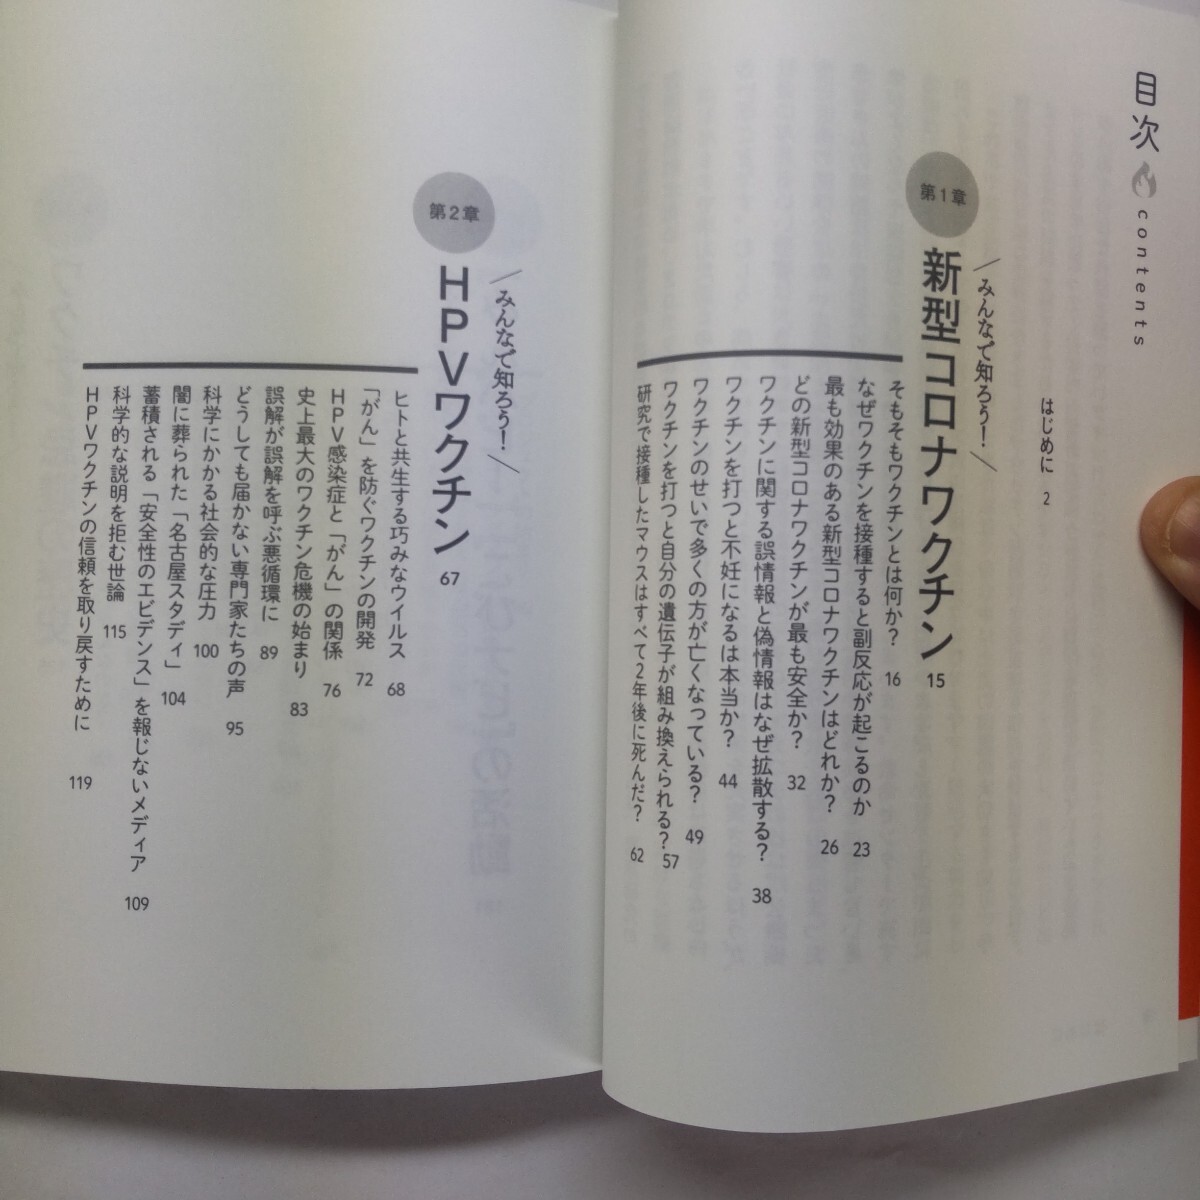 目次
contents
はじめに 2
第1章
みんなで知ろう!
新型コロナワクチン 15
そもそもワクチンとは何か? 16
なぜワクチンを接種すると副反応が起こるのか 23
最も効果のある新型コロナワクチンはどれか? 26
どの新型コロナワクチンが最も安全か? 32
ワクチンに関する誤情報と偽情報はなぜ拡散する? 38
ワクチンを打つと不妊になるは本当か? 44
ワクチンのせいで多くの方が亡くなっている? 49
ワクチンを打つと自分の遺伝子が組み換えられる? 57
研究で接種したマウスはすべて2年後に死んだ? 62
第2章
みんなで知ろう!
HPVワクチン 67
ヒトと共生する巧みなウイルス 68
「がん」を防ぐワクチンの開発 72
HPV感染症と「がん」の関係 76
史上最大のワクチン危機の始まり 83
誤解が誤解を呼ぶ悪循環に 89
どうしても届かない専門家たちの声 95
科学にかかる社会的な圧力 100
闇に葬られた「名古屋スタディ」 104
蓄積される「安全性のエビデンス」を報じないメディア 109
科学的な説明を拒む世論 115
HPVワクチンの信頼を取り戻すために 119